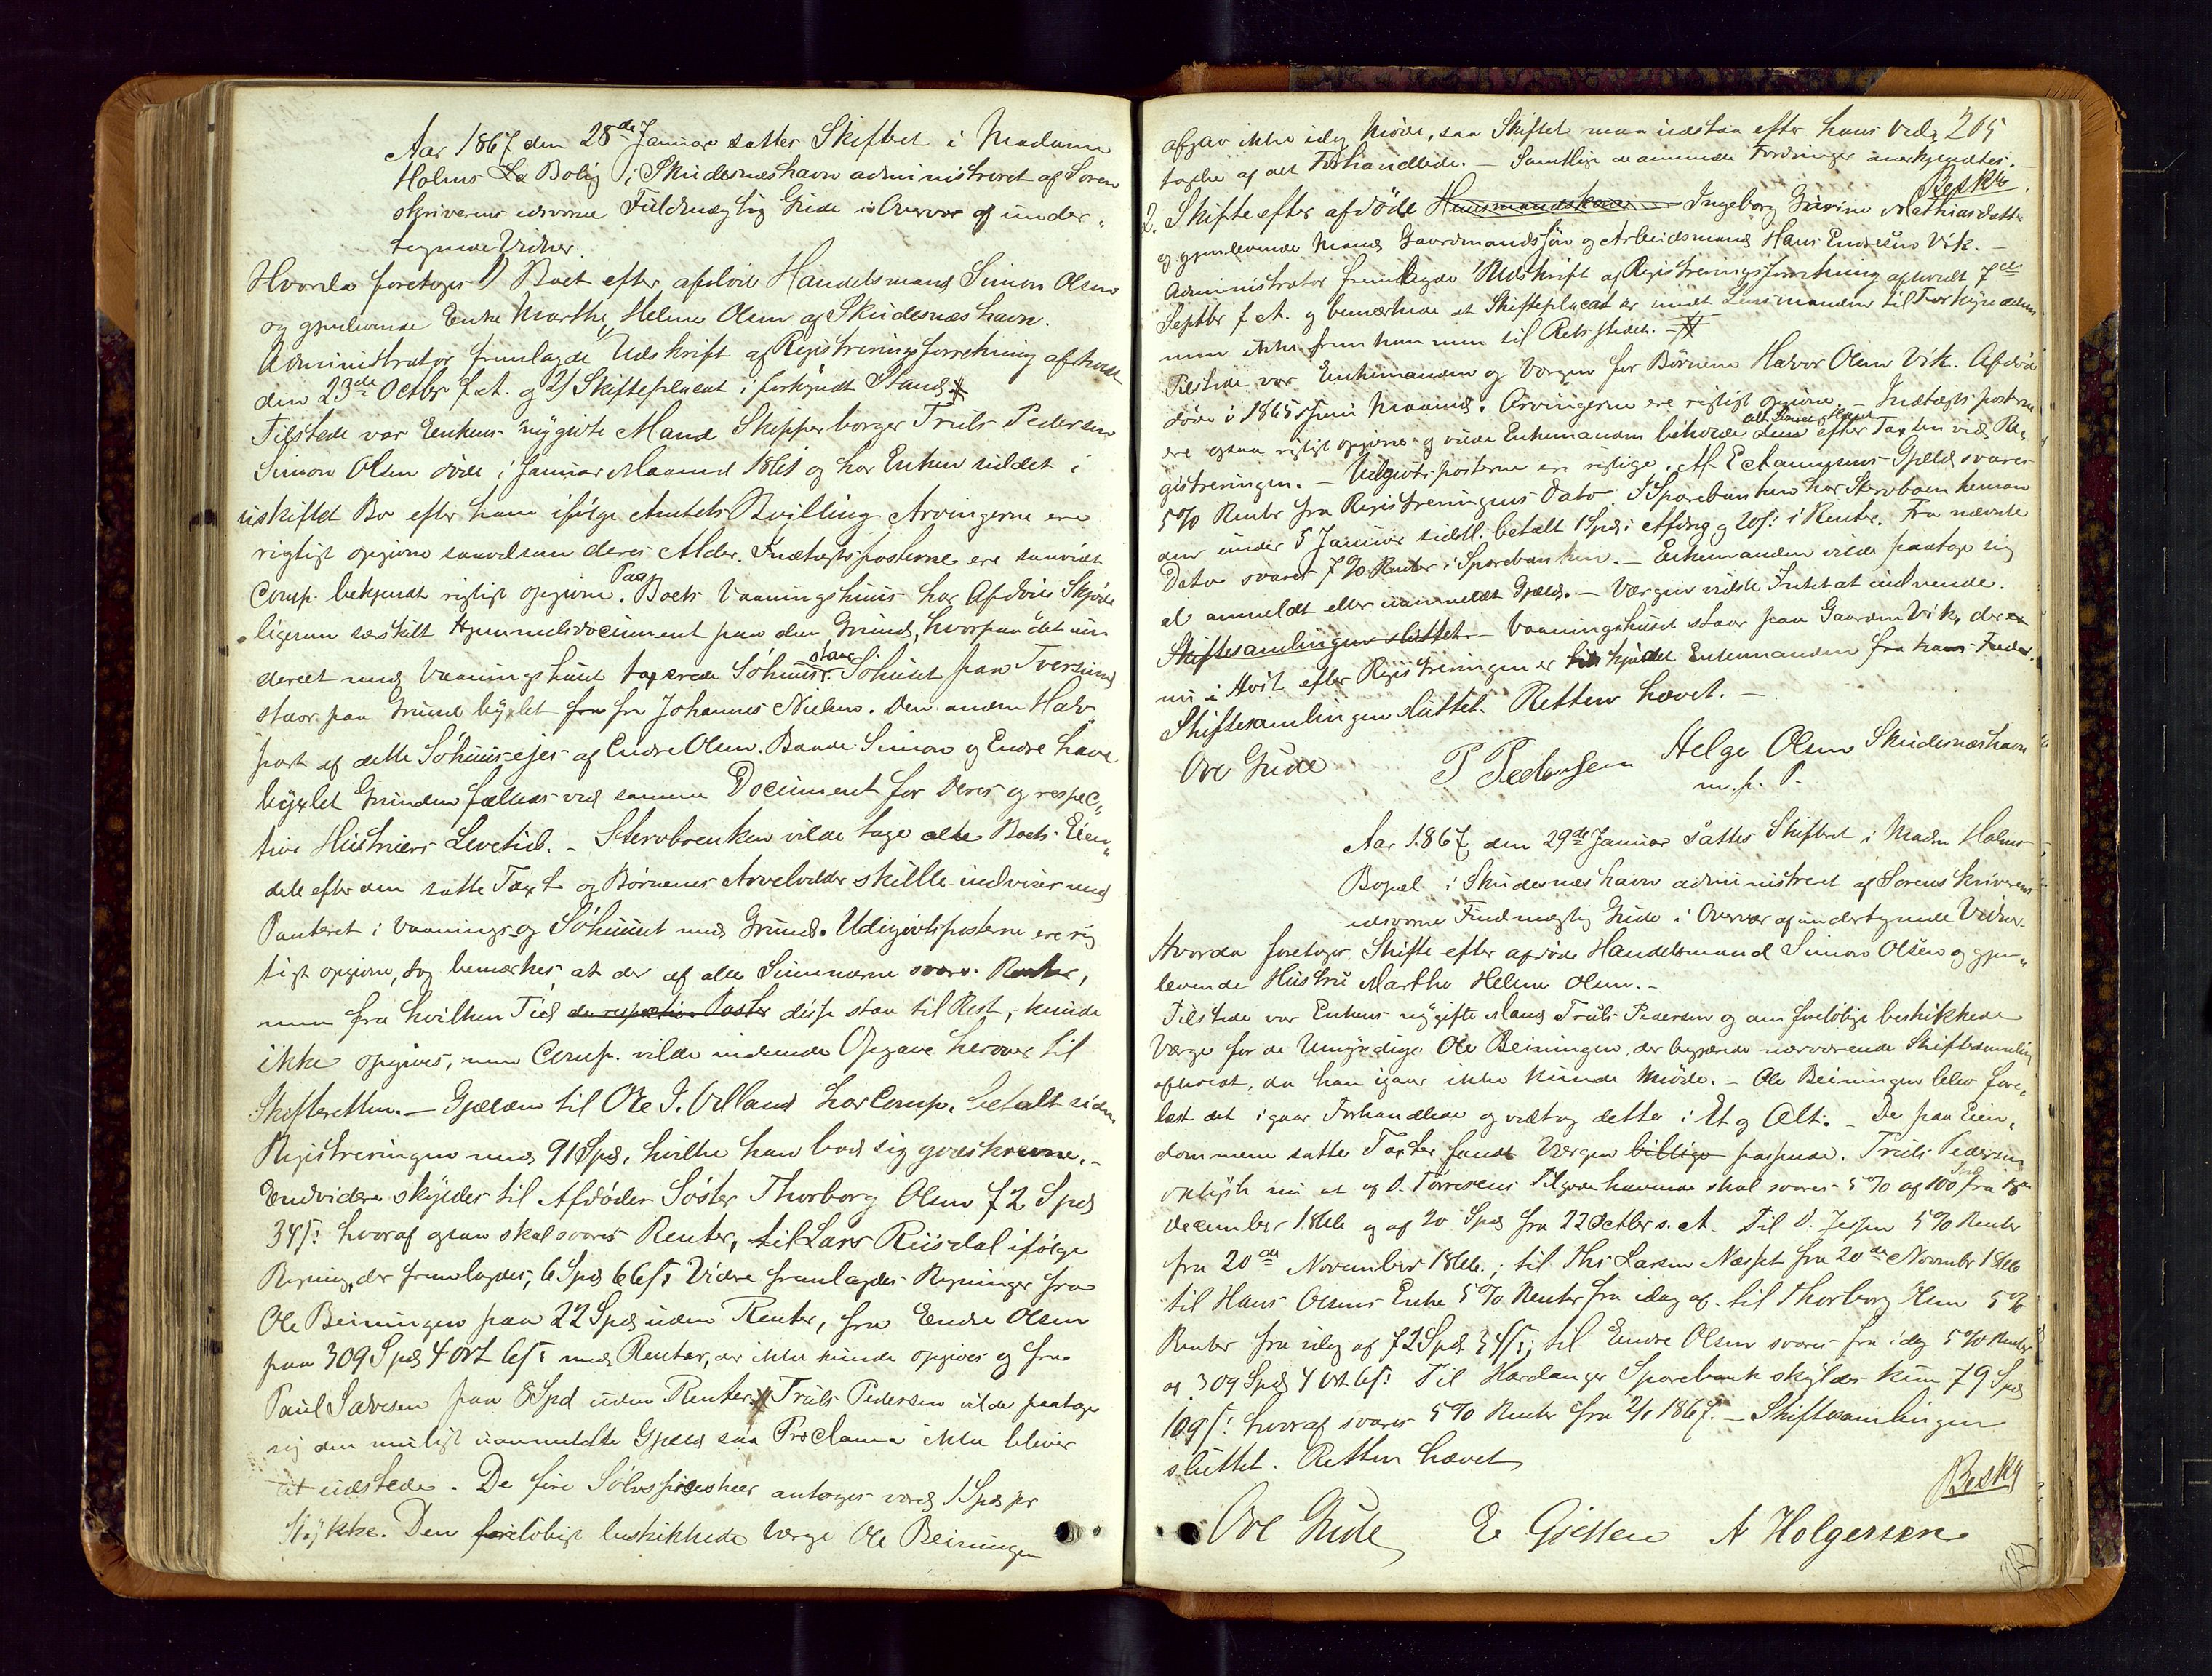 Aar 1867 den 28de Januar sattes Skifteret i Madame
Holms Bolig i Skudesnæshavn administreret af Soren
skriverens edsvorne Fuldmægtig Gude i Overvær af under„
tegnede Vidner.
Hvorda foretoges 1) Boet efter afdøde Handelsmand Simon Olsen
og gjenlevende Enke Marthe Helene Olsen af Skudesnæshavn.
Administrator fremlagde 1/ Udskrift af Registreringsforretning afholdt
den 23de Octbr f. A. og 2/ Skifteplacat i forkyndt Stand #
Tilstede var Enkens nygivte Mand Skipperborger Truls Pedersen
Simon Olsen døde i Januar Maaned 1861 og har Enken siddet i
uskiftet Bo efter ham ifølge Amtets Bevilling Arvingerne ere
rigtigt opgivne saavelsom deres Alder. Indtægtsposterne ere saavidt
Comp. bekjendt rigtigt opgivne. Paa Boets Vaaningshuus har Afdøde Skjøde
ligesom særskilt Hjemmelsdocument paa den Grund, hvorpaa det un„
deret med Vaaningshuset taxerede Söhuus staar. Söhuset paa Tversund
staar paa Grund byxlet fra Johannes Nielsen. Den anden Halv
part af dette Söhuus ejes af Endre Olsen. Baade Simon og Endre have
byxlet Grunden fælleds ved samme Document for deres og respec„
tive Hustruers Levetid. - Sterboenken vilde tage alle Boets Eien„
dele efter den satte Taxt og Börnenes Arvelodder skulle indvises med
Panteret i Vaanings og Söhuset med Grund. Udgivtsposterne ere rig
tigt opgivne, dog bemærkes at der af alle Summerne svares Renter,
men fra hvilken Tid de respective Poster disse staa til Rest, kunde
ikke opgives, men Comp. vilde indsende Opgave herover til
Skifteretten. - Gjælden til Ole G. Velland har Comp. betalt siden
Registreringen med 91 Spd, hvilke han bad sig godskrevne. -
Endvidere skyldes til Afdødes Søster Thorborg Olsen 72 Spd
34 ß: hvoraf ogsaa skal svares Renter, til Lars Riisdal ifølge
Regning, der fremlagdes, 6 Spd 66 ß: Videre fremlagdes Regninger fra
Ole Beiningen paa 22 Spd uden Renter, fra Endre Olsen
paa 309 Spd 4 Ort 6 ß: med Renter, der ikke kunde opgives og fra
Paul Sævesen paa 8 Spd uden Renter # Truls Pedersen vilde paatage
sig den muligt uanmeldte Gjæld saa Proclama ikke bliver
at udstede. De fire Sölvspiseskeer antoges værd 1 Spd pr
Stykke. Den foreløbigt beskikkede Værge Ole Beiningen
afgav ikke idag Møde, saa Skiftet maa udstaa efter hans Ved„ 205
tagelse af det Forhandlede. - Samtlige de anmeldte Fordringer anerkjendtes.
Beskr.
2. Skifte efter afdöde Huusmandskone Ingeborg Gurine Mathiasdatter
og gjenlevende Mand Gaardmandssøn og Arbeidsmand Hans Endresen Vik. -
Administrator fremlagde Udskrift af Registreringsforretning afholdt 7de
Septbr f. A. og bemærkede at Skifteplacat er sendt Lensmanden til Forkyndelse
men ikke fremkommen til Retsstedet. - #
Tilstede var Enkemanden og Værgen for Børnene Halvor Olsen Vik. Afdöde
døde i 1865 i Juni Maaned. Arvingerne ere rigtigt opgivne. - Indtægtsposterne
ere ogsaa rigtigt opgivne og vilde Enkemanden beholde efter Taxten ved Re„
gistreringen. - Udgivtsposterne ere rigtige. Af E Aanensens Gjæld svares
5% Renter fra Registreringens Dato. I Sparebanken har Sterboenkeman
den under 5 Januar sidstl. betalt 1 Spd i Afdrag og 20 ß: i Renter. Fra nævnte
Dato svares 7% Renter i Sparebanken. - Enkemanden vilde paatage sig
al anmeldt eller uanmeldt Gjæld. - Værgen vidste Intet at indvende.
Skiftesamlingen sluttet. - Vaaningshuset staar paa Gaarden Vik, der
nu i Høst efter Registreringen er skjødet Enkemanden fra hans Fader.
Skiftesamlingen sluttet. Retten hævet. -
Ove Gude P Pedersen Helge Olsen Skudesnæshavn
m. p. P.
Aar 1867 den 29de Januar sattes Skifteret i Madm Holms
Bopæl i Skudesnæshavn administreret af Sorenskriverens
edsvorne Fuldmægtig Gude i Overvær af undertegnede Vidner.
Hvorda foretoges Skifte efter afdøde Handelsmand Simon Olsen og gjen„
levende Hustru Marthe Helene Olsen. -
Tilstede var Enkens nygifte Mand Truls Pedersen og den foreløbige beskikkede
Værge for de Umyndige Ole Beiningen, der begjærede nærværende Skiftesamling
afholdt, da han igaar ikke kunde møde. - Ole Beiningen blev fore„
læst det igaar Forhandlede og vedtog dette i Et og Alt. - De paa Eien„
dommene satte Taxter fandt Værgen billige passende. Truls Pedersen
oplyste nu at af O. Tørresens Tilgodehavende skal svares 5% af 100 Spd fra 18de
December 1866 og af 20 Spd fra 22 Octbr s. A. Til O. Jessen 5% Renter
fra 20de November 1866; til Ths Larsen Næsset fra 20de Novembr 1866
til Hans Olsens Enke 5% Renter fra idag af. til Thorborg Olsen 5%
Renter fra idag af 72 Spd 34 ß; til Endre Olsen svares fra idag 5% Renter
af 309 Spd 4 Ort 6 ß: Til Hardanger Sparebank skyldes kun 79 Spd
109 ß: hvoraf svares 5% Renter fra 2/1 1867. - Skiftesamlingen
sluttet. Retten hævet
Beskr
Ove Gude E Gjessen A Holgersen